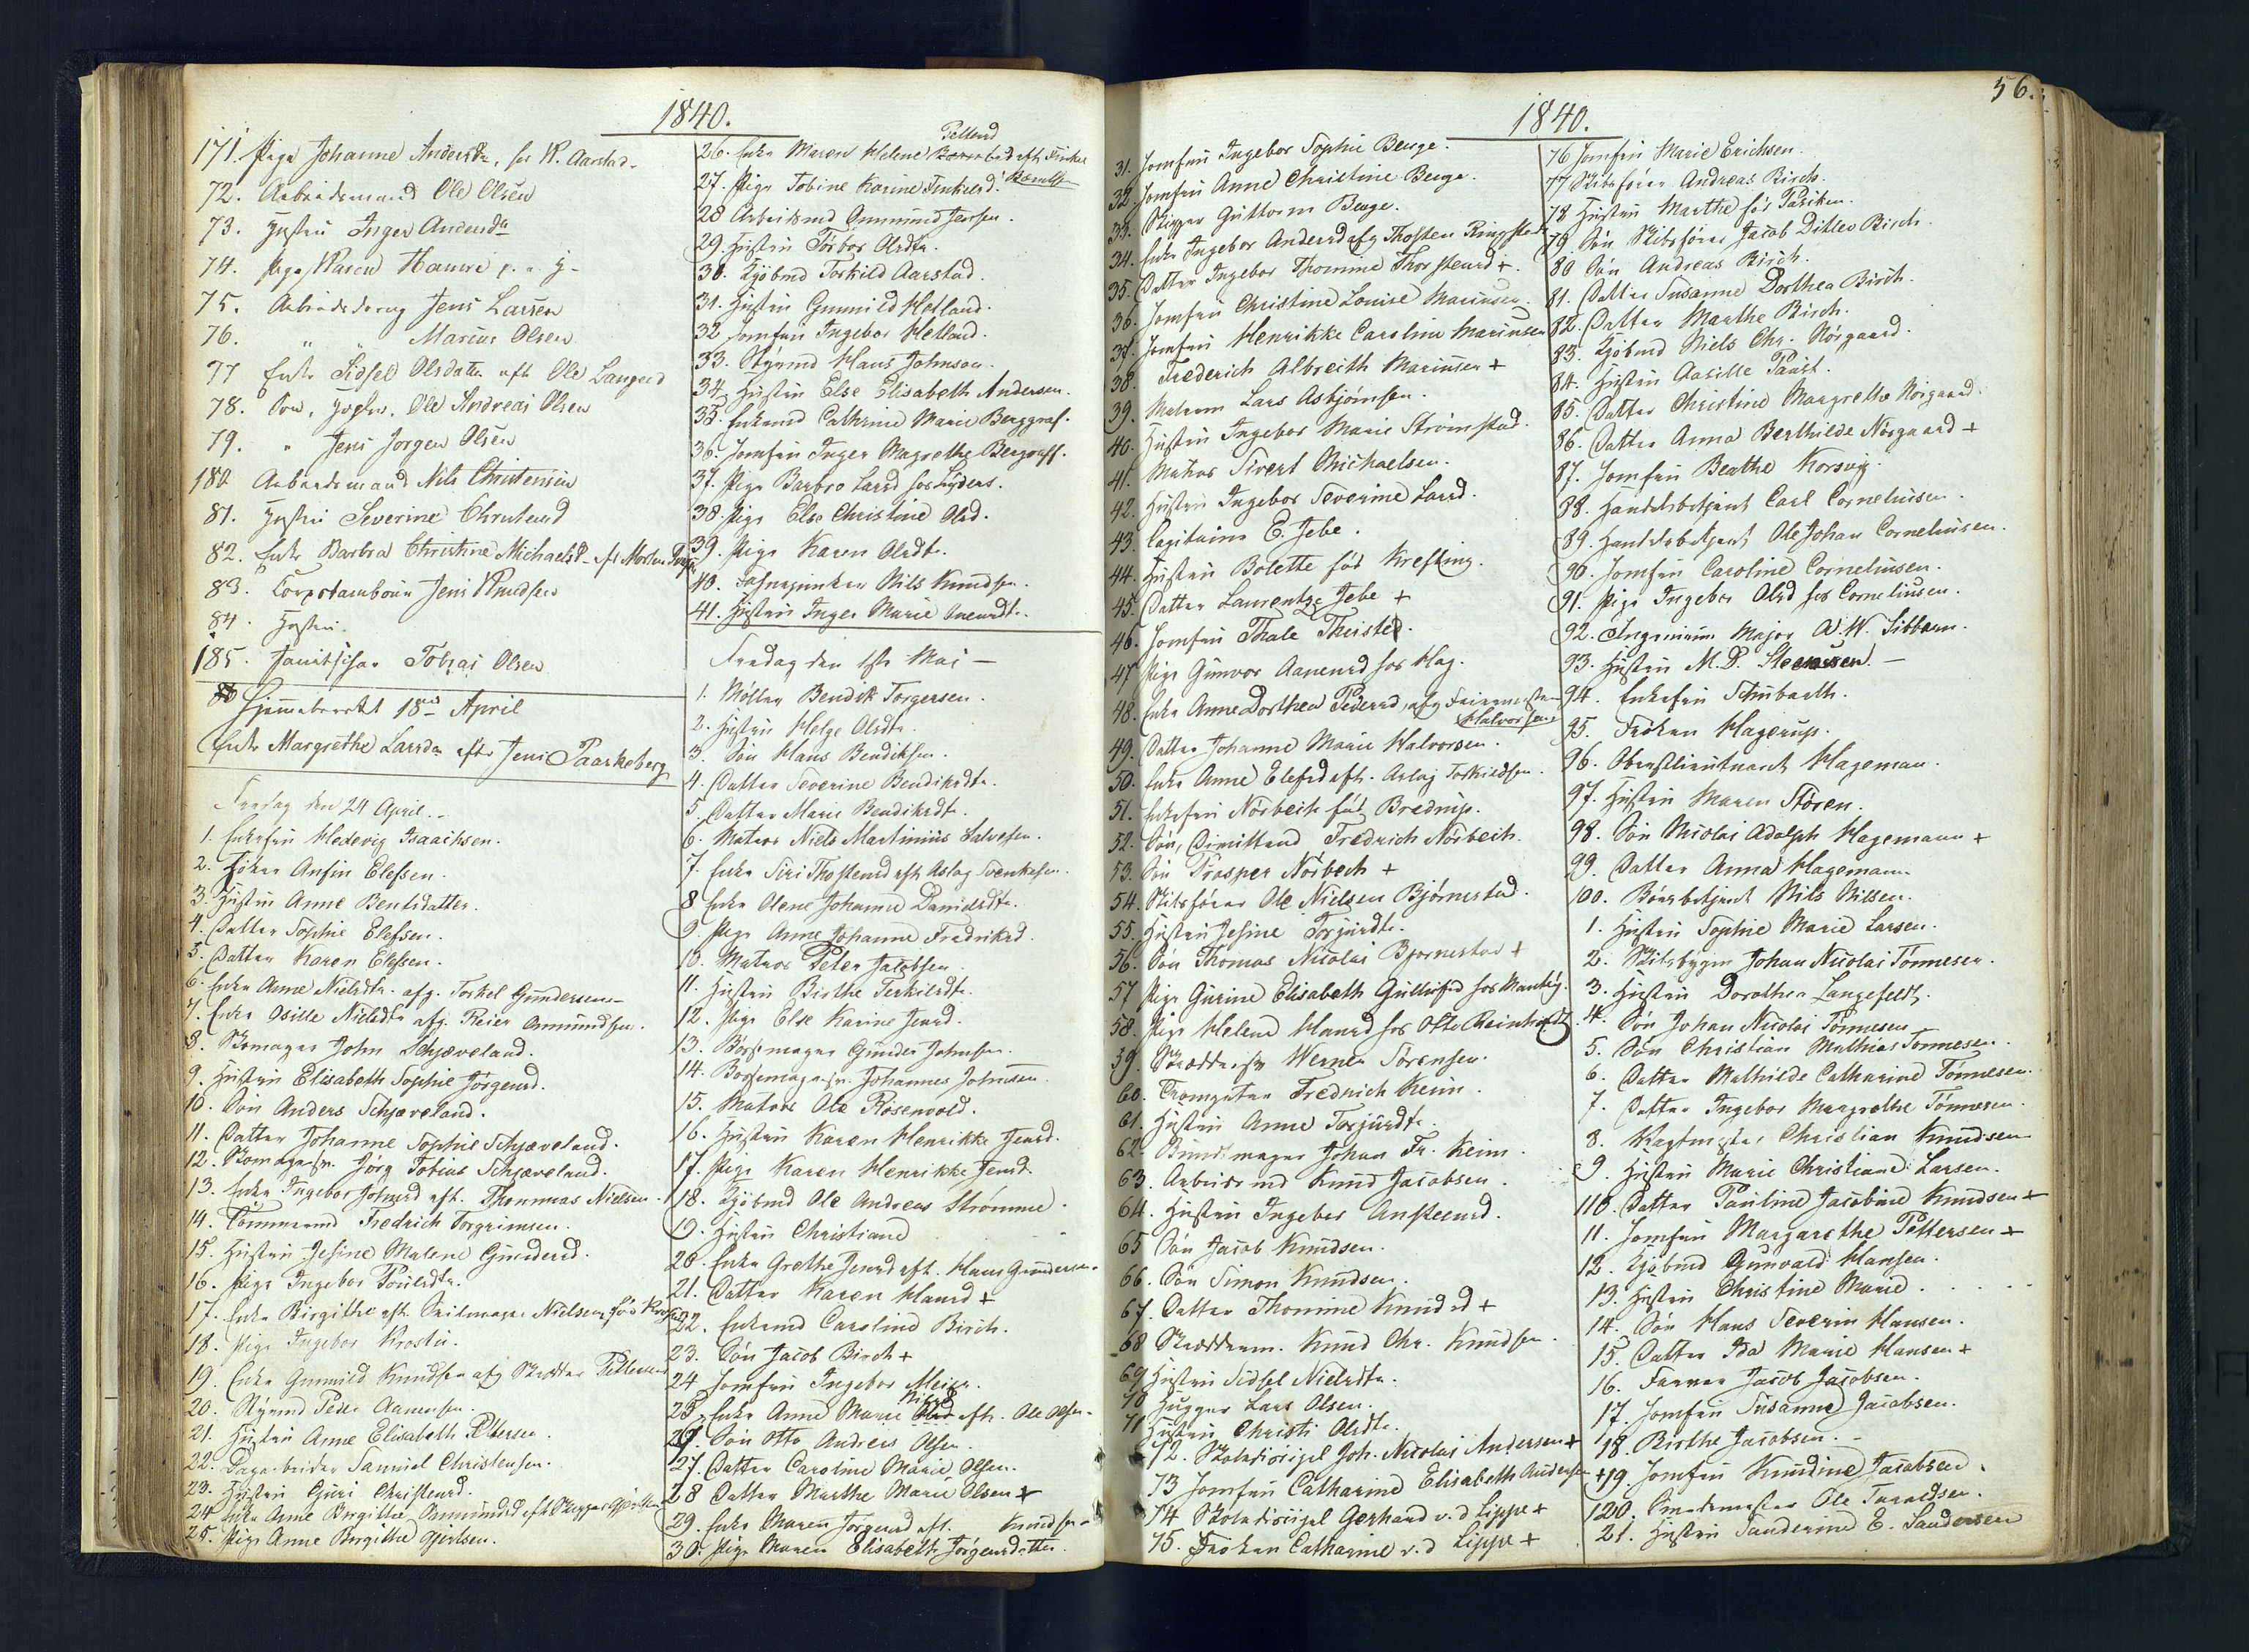 1840.
171. Pige Johanne Andersdr. hos K. Aarstad.
72. Arbeidsmand Ole Olsen
73. Hustru Inger Andersdr
74. Pige Maren Hamre
75. Arbeidsdreng Jens Larsen
76. " " Marius Olsen
77 Enke Sidsel Olsdatter eft. Ole Langerd
78. Søn, Ole Andreas Olsen
79. " Jens Jorgen Olsen
180 Arbeidsmand Nils Christensen
81. Hustru Severine Christensd
82. Enke Barbra Christine Michaelsd. eft. Morten
83. Corpstambour Jens Knudsen
84. Hustru.
185. Janitschar Tobias Olsen
Hjemmeberettet 18de April
Enke Margrethe Larsdr efter Jens Paaskeberg
Fredag den 24 April.
1. Enkefru Hedevig Isaachsen.
2. Høker Anfin Elefsen.
3. Hustru Anne Bentsdatter.
4. Datter Sophie Elefsen.
5. Datter Karen Elefsen.
6. Enke Anne Nielsdtr. afg. Torkel Gundersen
7. Enke Osille Nielsdtr afg. Reier Ommundsen.
8. Skomager John Schjæveland.
9. Hustru Elisabeth Sophie Jörgensd.
10. Søn Anders Schjæveland.
11. Datter Johanne Sophie Schjæveland.
12. Skomagersv. Jörg Tobias Schjæveland.
13. Enke Ingebor Johnsd eft. Thommas Nielsen.
14. Tømmermd Fredrich Torgrimsen.
15. Hustru Jesine Malene Gundersd.
16. Pige Ingebor Poulsdtr.
17. Enke Birgithe eft. Seilmager Nielsen, fød
18. Pige Ingebor Krostü.
19. Enke Gunnild Knudsen afg Skredder Pettersen
20. Styrmd Peder Aanensen.
21. Hustru Anne Elisabeth Pettersen.
22. Dagarbeider Samuel Christensen.
23. Hustru Guri Christensd.
24 Enke Anne Birgithe Ommundsd eft Skipper Gjertsen
25. Pige Anne Birgithe Gjertsen.
26. Enke Maren Helene Pettersd eft
27. Pige Tobine Karine
28 Arbeidsmd Ommund Jensen.
29. Hustru Törbor Olsdtr.
30. Kjöbmd Torkild Aarstad.
31. Hustru Gunnild Helland.
32 Jomfru Ingebor Helland.
33. Styrmd Hans Johnson.
34. Hustru Else Elisabeth Andersen.
35. Enkemd Cathrine Marie Berggraf.
36. Jomfru Inger Magrethe Bergraff.
37. Pige Barbro Larsd hos Lyders.
38. Pige Else Christine Olsd.
39. Pige Karen Olsdt.
40. Fahnejunker Nils Knudsen.
41. Hustru Inger Marie
Fredag den 1ste Mai —
1. Møller Bendik Torgersen.
2. Hustru Helge Olsdtr.
3. Søn Hans Bendiksen.
4. Datter Severine Bendiksdtr.
5. Datter Marie Bendiksdt.
6. Matros Niels Martinius Salvesen.
7. Enke Siri Thostensd eft Aslag Svenkesen.
8 Enke Olene Johanne Danielsdtr.
9 Pige Anne Johanne Fredriksd.
10. Matros Peter Jacobsen
11. Hustru Birthe Terkilsdtr.
12. Pige Else Karine Jensd.
13. Børstemager Gunder Johnsen.
14. Børstemagersv. Johannes Johnsen
15. Matros Ole Rosenvold.
16. Hustru Karen Henrikke Jensd.
17. Pige Karen Henrikke Jensd.
18. Kjöbmd Ole Andreas Strömme.
19. Hustru Christiane
20. Enke Grethe Jensd eft. Hans Gundersen.
21. Datter Karen Hansd +
22. Enkemd Caroline Birch.
23. Søn Jacob Birch +
24 Jomfru Ingebor Meier.
25. Enke Anne Marie Nilsd eft. Ole Olsen.
26. Søn Otto Andreas Olsen.
27. Datter Caroline Marie Olsen.
28 Datter Marthe Marie Olsen +
29. Enke Maren Jorgensd eft. Knudsen
30. Pige Maren Elisabeth Jörgensdatter.
56.
1840.
31. Jomfru Ingebor Sophie Beuge.
32 Jomfru Anne Christine Beuge.
33. Skipper Guttorm Beuge.
34. Enke Ingebor Andersd afg Thosten Ringsted
35. Datter Ingebor Thomine Thorstensd +.
36. Jomfru Christine Louise Mariusen.
37. Jomfru Henrikke Caroline Mariusen
38. Frederich Albreith Mariusen +
39. Malerm Lars Asbjörnsen.
40. Hustru Ingebor Marie Strömstad.
41. Matros Sivert Michaelsen.
42. Hustru Ingebor Severine Larsd.
43. Capitaine E. Jebe.
44. Hustru Bolette fød Krefting.
45. Datter Laurentze Jebe +
46. Jomfru Thale Theisted.
47 Pige Gunvor Aanensd hos Hag.
48. Enke Anne Dorthea Pedersd, afg Halvorsen
49. Datter Johanne Marie Halvorsen.
50. Enke Anne Elefsd eft. Aslag Torkildsen.
51. Enkefru Nörbech fød Bredrup.
52. Søn, Dimittend Fredrich Nörbech
53. Søn Prosper Nörbech +
54. Skibsfører Ole Nielsen Bjørnestad.
55. Hustru Jesine Torjusdt.
56. Søn Thomas Nicolai Bjornestad +
57 Pige Gurine Elisabeth Gullufsd hos Manbÿ.
58. Pige Helene Hansd hos Otto Reinhardt
59. Skræddersv Werner Sörensen.
60. Trompeter Fredrich Keim.
61. Hustru Anne Torjusdtr.
62. Bundtmager Johan Fr. Keim.
63. Arbeidsmd Knud Jacobsen.
64. Hustru Ingebor Anstensd.
65 Søn Jacob Knudsen.
66. Søn Simon Knudsen.
67. Datter Thomine Knudsd +
68 Skædderm. Knud Chr. Knudsen.
69 Hustru Sidsel Nielsdtr.
70 Hugger Lars Olsen.
71 Hustru Christi Olsdtr.
72. Skoledisipel Joh. Nicolai Andersen +
73 Jomfru Catharine Elisabeth Andersen +
74 Skoledisipel Gerhard v. d Lippe +
75. Frøken Catharine v. d Lippe +
76 Jomfru Marie Erichsen.
77 Skibsfører Andreas Birch.
78 Hustru Marthe fød Pasiken.
79 Søn Skibsfører Jacob Ditlev Birch.
80 Søn Andreas Birch.
81. Datter Susanne Dorthea Birch.
82. Datter Marthe Birch.
83. Kjöbmd Niels Chr. Nörgaard.
84. Hustru Aasille Paust.
85. Datter Christine Margrethe Nörgaard.
86. Datter Anna Berthilde Nörgaard +
87. Jomfru Beathe Korsvig.
88. Handelsbetjent Carl Corneliusen.
89. Handelsbetjent Ole Johan Corneliusen.
90. Jomfru Caroline Corneliusen.
91. Pige Ingebor Olsd hos Corneliusen.
92. Ingenieur Major V. W. Sibbern.
93. Hustru M. D. Steenssen. —
94. Enkefru Schubarth.
95. Frøken Hagerup.
96. Oberstlieutnant Hageman.
97. Hustru Maren Stören.
98. Søn Nicolai Adolph Hagemann +
99. Datter Anna Hagemann.
100. Børsbetjent Nils Nilsen.
1. Hustru Sophie Marie Larsen.
2. Skibsbygm Johan Nicolai Tönnesen.
3. Hustru Dorothea Langefeldt.
4. Søn Johan Nicolai Tönnesen
5. Søn Christian Mathias Tönnesen.
6. Datter Mathilde Catharine Tönnesen.
7. Datter Ingebor Margrethe Tönnesen.
8. Vagtmester Christian Knudsen
9. Hustru Marie Christiane Larsen.
110. Datter Pauline Jacobine Knudsen +
11. Jomfru Margarethe Pettersen +
12. Kjöbmd Gunvald Hansen.
13. Hustru Christine Marie
14. Søn Hans Severin Hansen.
15. Datter Ida Marie Hansen +
16. Farver Jacob Jacobsen.
17. Jomfru Susanne Jacobsen.
18. Birthe Jacobsen. –
19. Jomfru Knudine Jacobsen.
120. Smedemester Ole Taraldsen.
21. Hustru Sanderine E. Sandersen